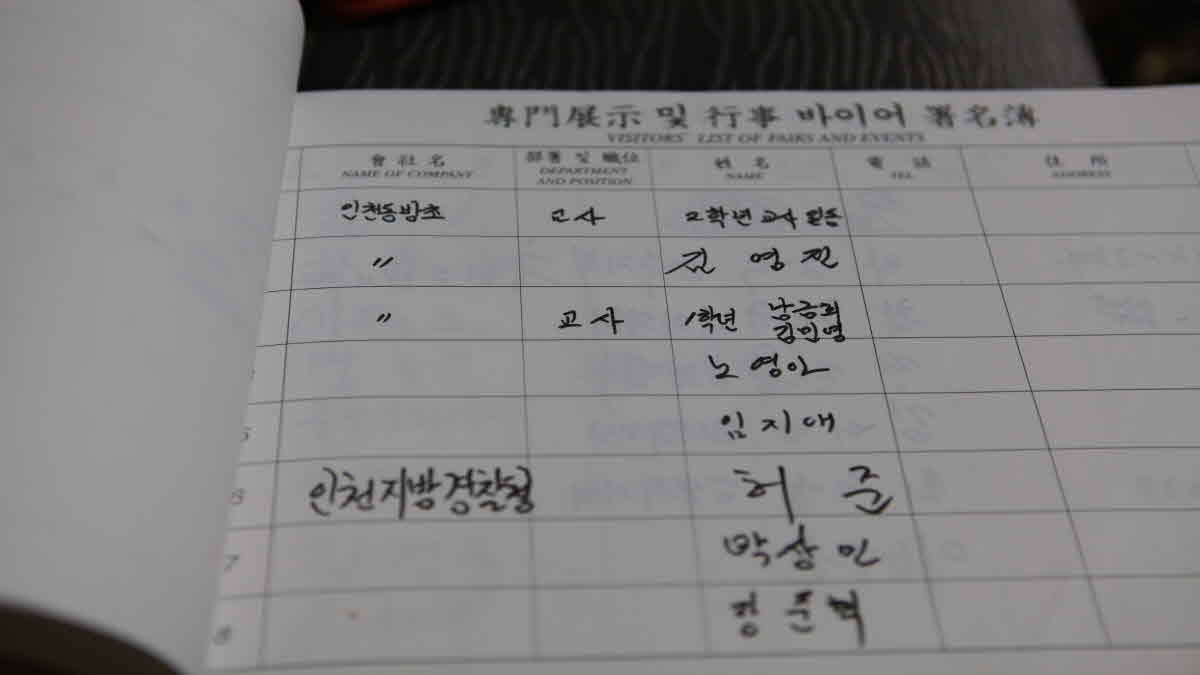 專門展示 및 行事 바이어 署名簿
VISITORS' LIST OF FAIRS AND EVENTS
會社名 部署 및 職位 姓名 電話 住所
NAME OF COMPANY DEPARTMENT AND POSITION NAME TEL ADDRESS
인천동방초 교사 2학년 교사 일동
〃 김영진
〃 교사 1학년
김민영
노영아
5 임지애
6 인천지방경찰청 허준
7 박상민
8 정준